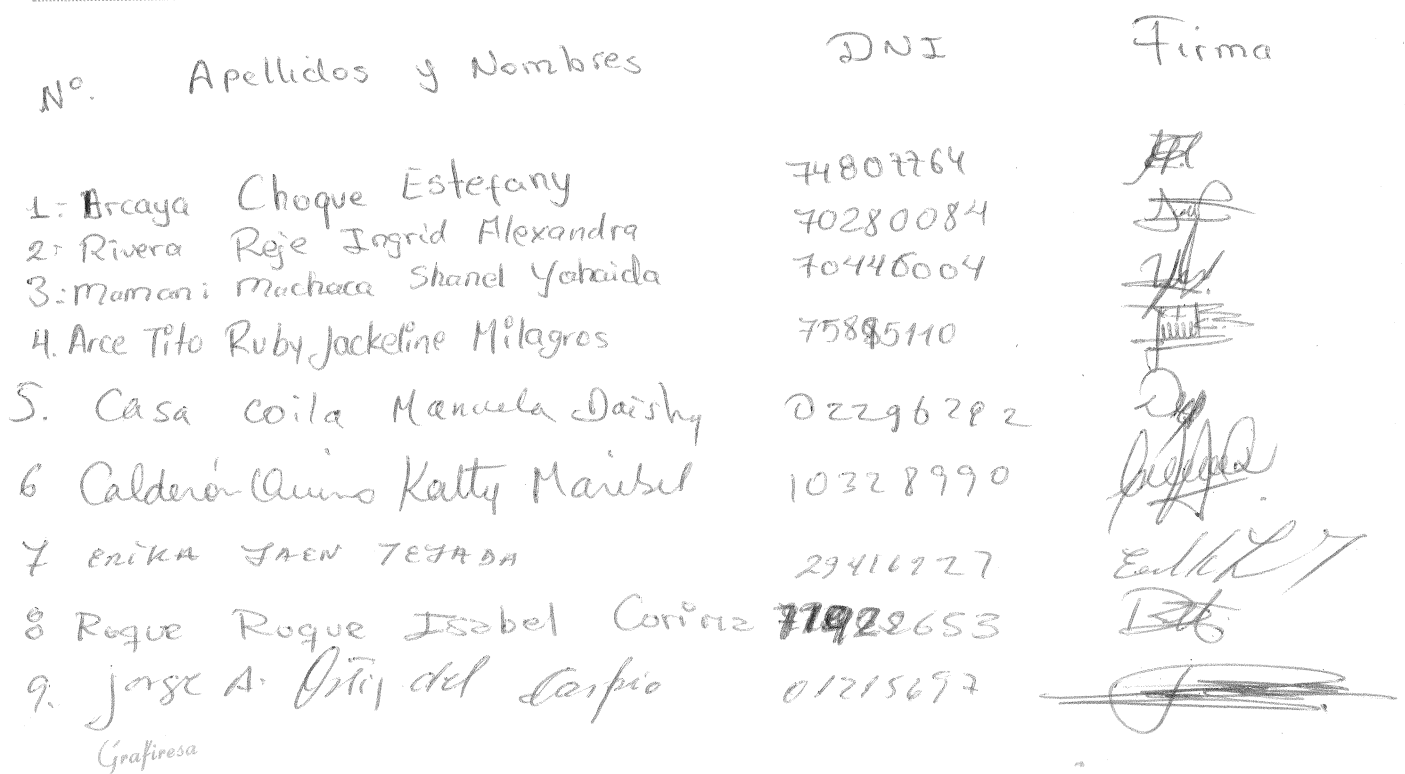 Nº. Apellidos y Nombres DNI Firma
1: Arcaya Choque Estefany 74807764
2: Rivera Reje Ingrid Alexandra 70280084
3: Mamani Machaca Shanel Yahaida 70446004
4. Arce Tito Ruby Jackeline Milagros 75885110
5. Casa coila Manuela Daishy 02296292
6 Calderón Quino Katty Maribel 10328990
7 ERIKA JAEN TEJADA 29416227
8 Roque Roque Isabel Corina 71922653
9. Jorge A. Ortiz del Carpio 01215697
Grafiresa